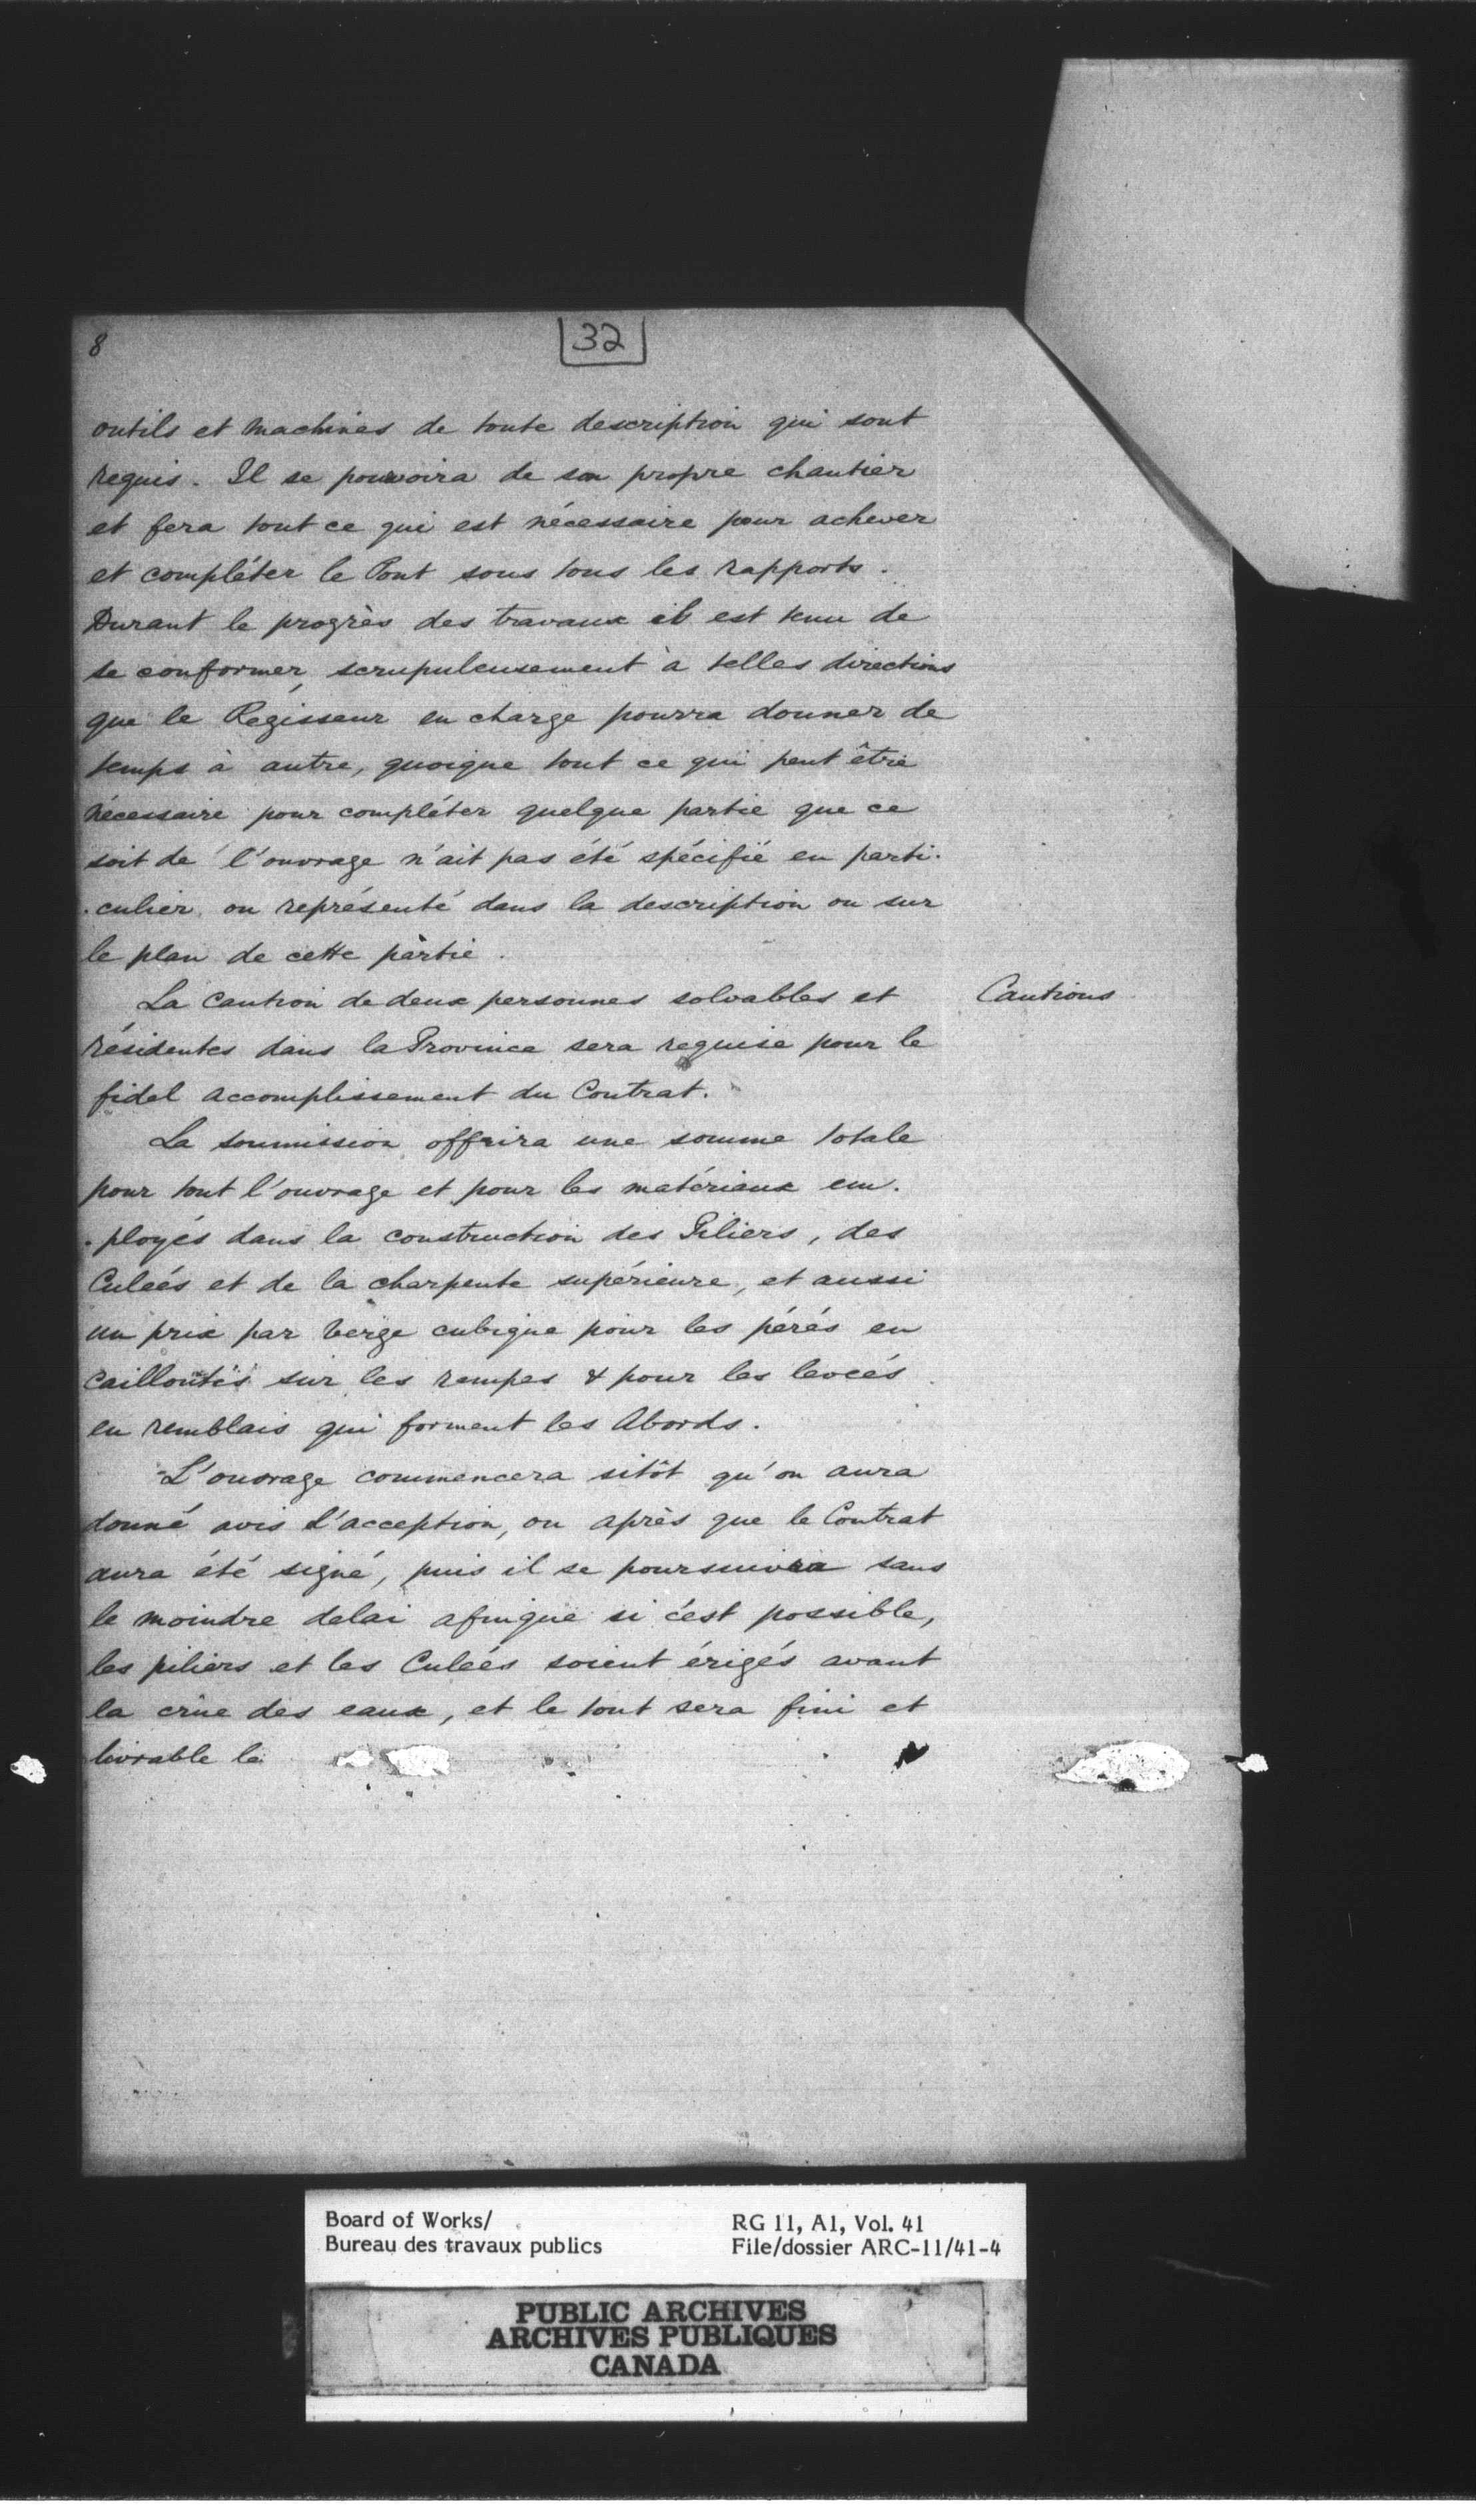 8
32
outils et machines de toute description qui sont
requis. Il se pourvoira de son propre chantier
et fera tout ce qui est nécessaire pour achever
et compléter le Pont sous tous les rapports.
Durant le progrès des travaux il est tenu de
se conformer scrupuleusement à telles directions
que le Régisseur en charge pourra donner de
temps à autre, quoique tout ce qui peut être
nécessaire pour compléter quelque partie que ce
soit de l'ouvrage n'ait pas été spécifié en parti-
-culier ou représenté dans la description ou sur
le plan de cette partie.
La Caution de deux personnes solvables et
Cautions
résidentes dans la Province sera requise pour le
fidel accomplissement du Contrat.
La soumission offrira une somme totale
pour tout l'ouvrage et pour les matériaux em-
-ployés dans la construction des Piliers, des
Culeés et de la charpente supérieure, et aussi
un prix par verge cubique pour les pérés en
Cailloutis sur les rempes & pour les leveés
en remblais qui forment les Abords.
L'ouvrage commencera sitôt qu'on aura
donné avis d'acception, ou après que le Contrat
aura été signé, puis il se poursuivra sans
le moindre delai afinque si c'est possible,
les piliers et les Culeés soient érigés avant
la crûe des eaux, et le tout sera fini et
livrable le
Board of Works/
Bureau des travaux publics
RG 11, A1, Vol. 41
File/dossier ARC-11/41-4
PUBLIC ARCHIVES
ARCHIVES PUBLIQUES
CANADA